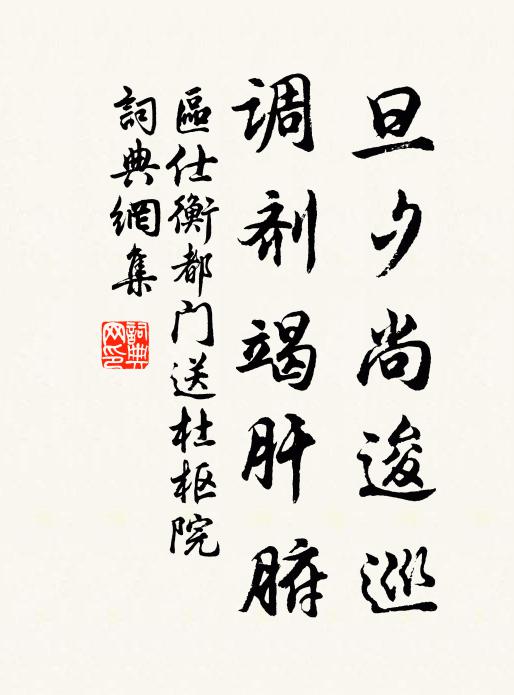 旦夕尚逡巡
调剂竭肝腑
區仕衡都门送杜枢院
詞典網集
詞典网印